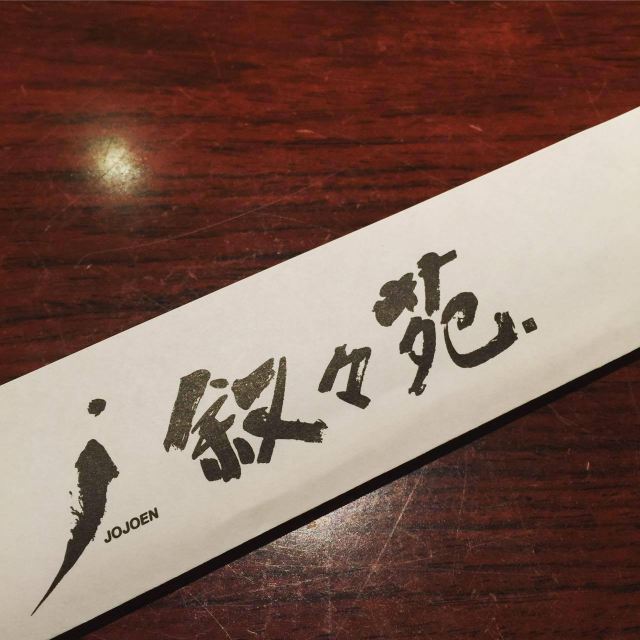 j JOJOEN 叙々苑.